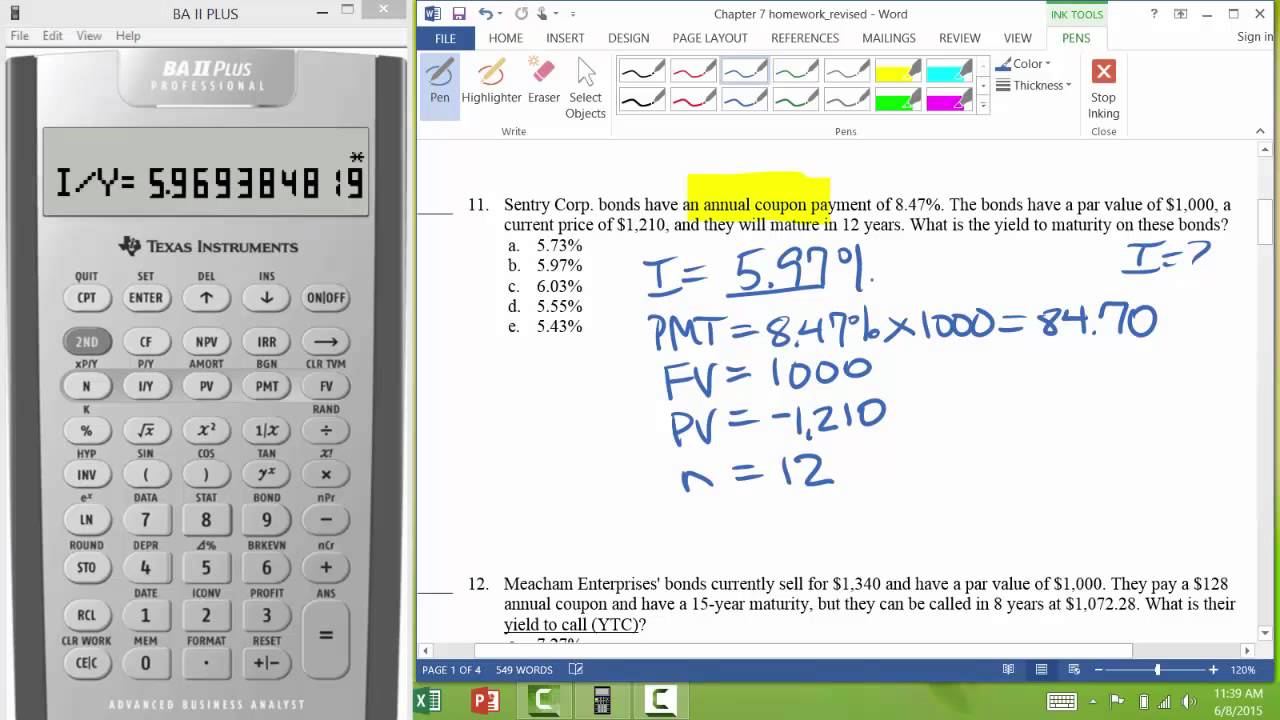 BA II PLUS
File Edit View Help
BA II PLUS
PROFESSIONAL
I/Y= 5.969384819
TEXAS INSTRUMENTS
QUIT SET DEL INS
CPT ENTER ↑ ↓ ON|OFF
2ND CF NPV IRR →
xP/Y P/Y AMORT BGN CLR TVM
N I/Y PV PMT FV
K RAND
% √x x² 1/x ÷
HYP SIN COS TAN x!
INV ( ) yˣ ×
eˣ DATA STAT BOND nPr
LN 7 8 9 −
ROUND DEPR Δ% BRKEVN nCr
STO 4 5 6 +
DATE ICONV PROFIT ANS
RCL 1 2 3 =
CLR WORK MEM FORMAT RESET
CE|C 0 . +|−
ADVANCED BUSINESS ANALYST
Chapter 7 homework_revised - Word
INK TOOLS
FILE HOME INSERT DESIGN PAGE LAYOUT REFERENCES MAILINGS REVIEW VIEW PENS
Sign in
Pen Highlighter Eraser Select Objects
Color
Thickness
Stop Inking
Write Pens Close
11. Sentry Corp. bonds have an annual coupon payment of 8.47%. The bonds have a par value of $1,000, a
current price of $1,210, and they will mature in 12 years. What is the yield to maturity on these bonds?
a. 5.73%
b. 5.97%
c. 6.03%
d. 5.55%
e. 5.43%
I=?
I = 5.97%
PMT = 8.47% x 1000 = 84.70
FV = 1000
PV = -1,210
n = 12
12. Meacham Enterprises' bonds currently sell for $1,340 and have a par value of $1,000. They pay a $128
annual coupon and have a 15-year maturity, but they can be called in 8 years at $1,072.28. What is their
yield to call (YTC)?
PAGE 1 OF 4 549 WORDS
120%
11:39 AM
6/8/2015